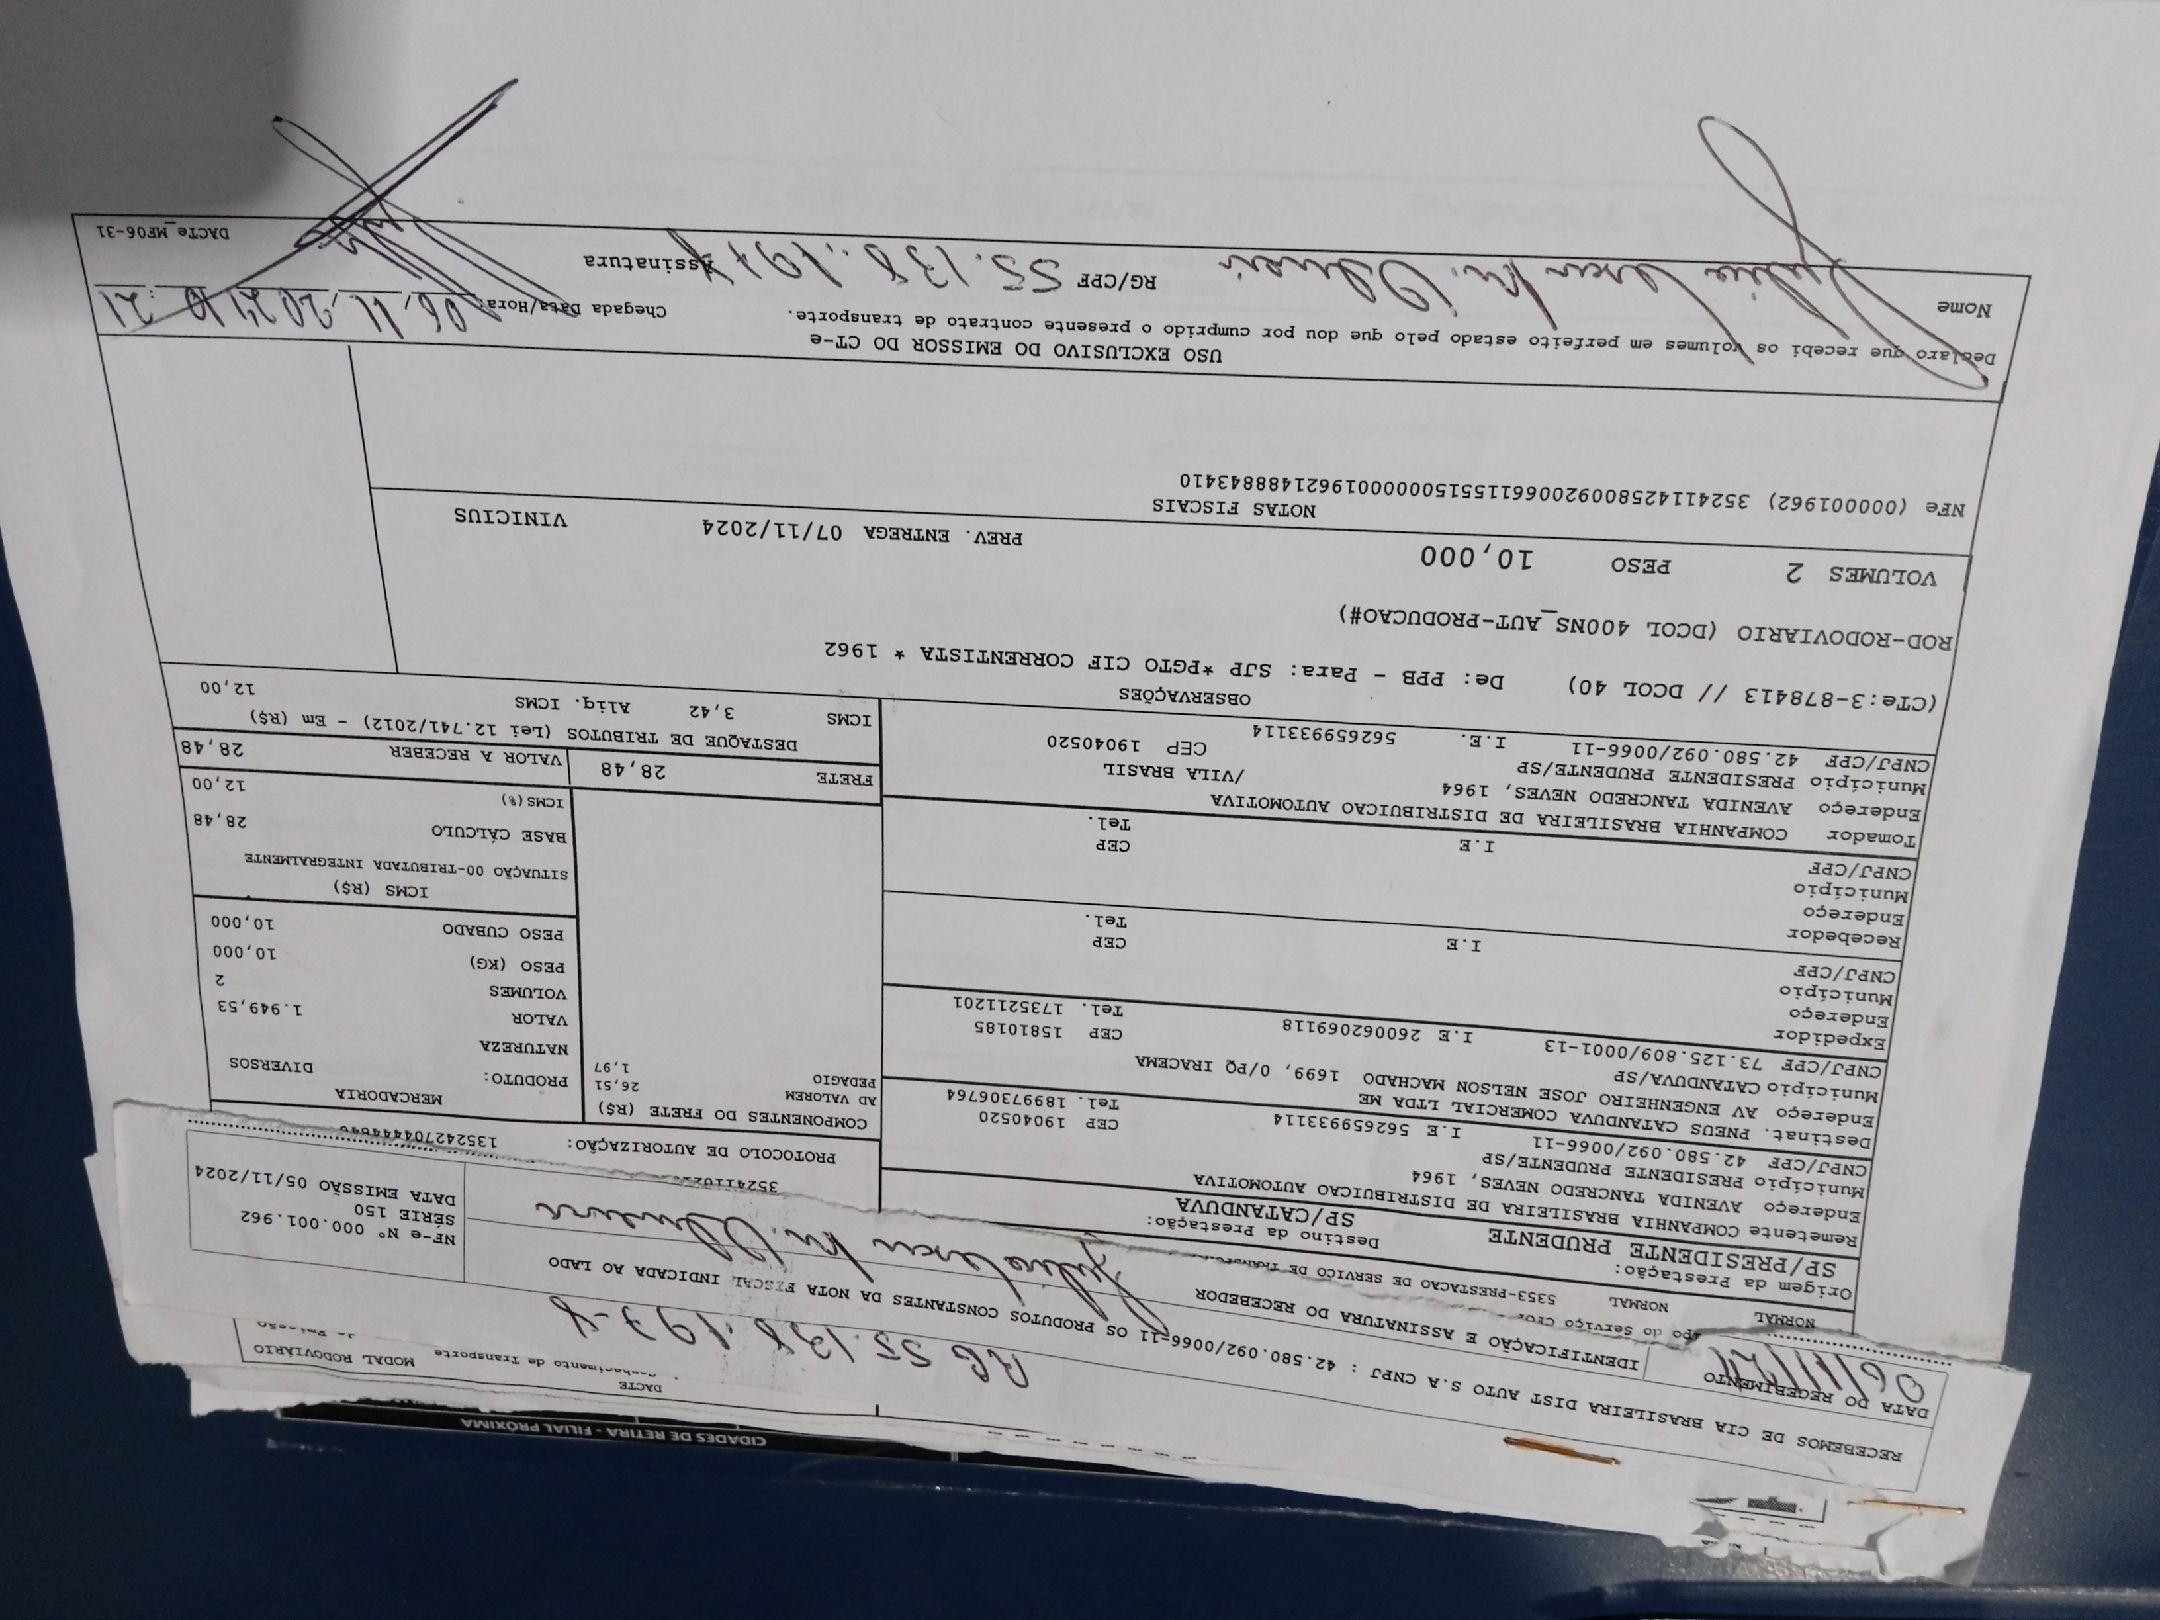 CIDADES DE RETIRA - FILIAL PRÓXIMA
DACTE
MODAL RODOVIÁRIO
RECEBEMOS DE CIA BRASILEIRA DIST AUTO S.A CNPJ : 42.580.092/0066-11 OS PRODUTOS CONSTANTES DA NOTA FISCAL INDICADA AO LADO
RG 55.138.197-X
DATA DO RECEBIMENTO
06/11/24
IDENTIFICAÇÃO E ASSINATURA DO RECEBEDOR
NF-e Nº 000.001.962
SÉRIE 150
DATA EMISSÃO 05/11/2024
NORMAL NORMAL 5353-PRESTACAO DE SERVICO DE
Origem da Prestação:
SP/PRESIDENTE PRUDENTE
Destino da Prestação:
SP/CATANDUVA
PROTOCOLO DE AUTORIZAÇÃO:
Remetente COMPANHIA BRASILEIRA DE DISTRIBUICAO AUTOMOTIVA
Endereço AVENIDA TANCREDO NEVES, 1964
Município PRESIDENTE PRUDENTE/SP CEP 19040520
CNPJ/CPF 42.580.092/0066-11 I.E 562659933114 Tel. 18997306764
Destinat. PNEUS CATANDUVA COMERCIAL LTDA ME
Endereço AV ENGENHEIRO JOSE NELSON MACHADO 1699, 0/PQ IRACEMA
Município CATANDUVA/SP CEP 15810185
CNPJ/CPF 73.125.809/0001-13 I.E 260062069118 Tel. 1735211201
Expedidor
Endereço
Município CEP
CNPJ/CPF I.E Tel.
Recebedor
Endereço
Município CEP
CNPJ/CPF I.E Tel.
Tomador COMPANHIA BRASILEIRA DE DISTRIBUICAO AUTOMOTIVA
Endereço AVENIDA TANCREDO NEVES, 1964 /VILA BRASIL
Município PRESIDENTE PRUDENTE/SP CEP 19040520
CNPJ/CPF 42.580.092/0066-11 I.E. 562659933114
COMPONENTES DO FRETE (R$)
AD VALOREM 26,51
PEDAGIO 1,97
FRETE 28,48
MERCADORIA
PRODUTO: DIVERSOS
NATUREZA
VALOR 1.949,53
VOLUMES 2
PESO (KG) 10,000
PESO CUBADO 10,000
ICMS (R$)
SITUAÇÃO 00-TRIBUTADA INTEGRALMENTE
BASE CÁLCULO 28,48
ICMS(%) 12,00
VALOR A RECEBER 28,48
DESTAQUE DE TRIBUTOS (Lei 12.741/2012) - Em (R$)
ICMS 3,42 Aliq. ICMS 12,00
OBSERVAÇÕES
(CTe:3-878413 // DCOL 40) De: PPB - Para: SJP *PGTO CIF CORRENTISTA * 1962
ROD-RODOVIARIO (DCOL 400NS_AUT-PRODUCAO#)
VOLUMES 2 PESO 10,000 PREV. ENTREGA 07/11/2024 VINICIUS
NOTAS FISCAIS
NFe (000001962) 35241142580092006611551500000019621488843410
USO EXCLUSIVO DO EMISSOR DO CT-e
Declaro que recebi os volumes em perfeito estado pelo que dou por cumprido o presente contrato de transporte.
Chegada Data/Hora: 06.11.2024
Nome RG/CPF 55.138.197-X Assinatura
DACTe_MF06-31